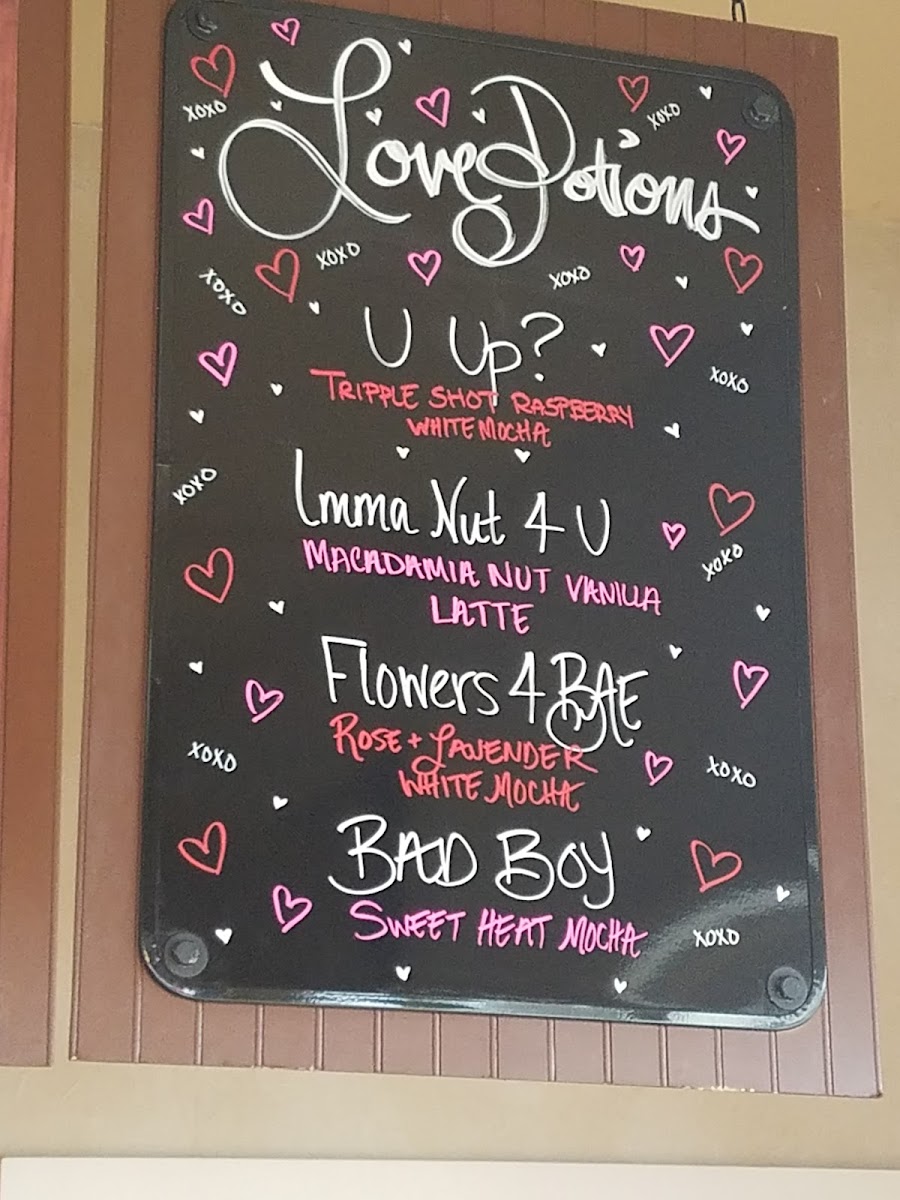 Love Potions
XOXO
XOXO
XOXO
XOXO
XOXO
U Up?
XOXO
TRIPPLE SHOT RASPBERRY
WHITE MOCHA
XOXO
Imma Nut 4 U
XOXO
MACADAMIA NUT VANILLA
LATTE
Flowers 4 BAE
ROSE + LAVENDER
XOXO
XOXO
WHITE MOCHA
BAD BOY
SWEET HEAT MOCHA
XOXO